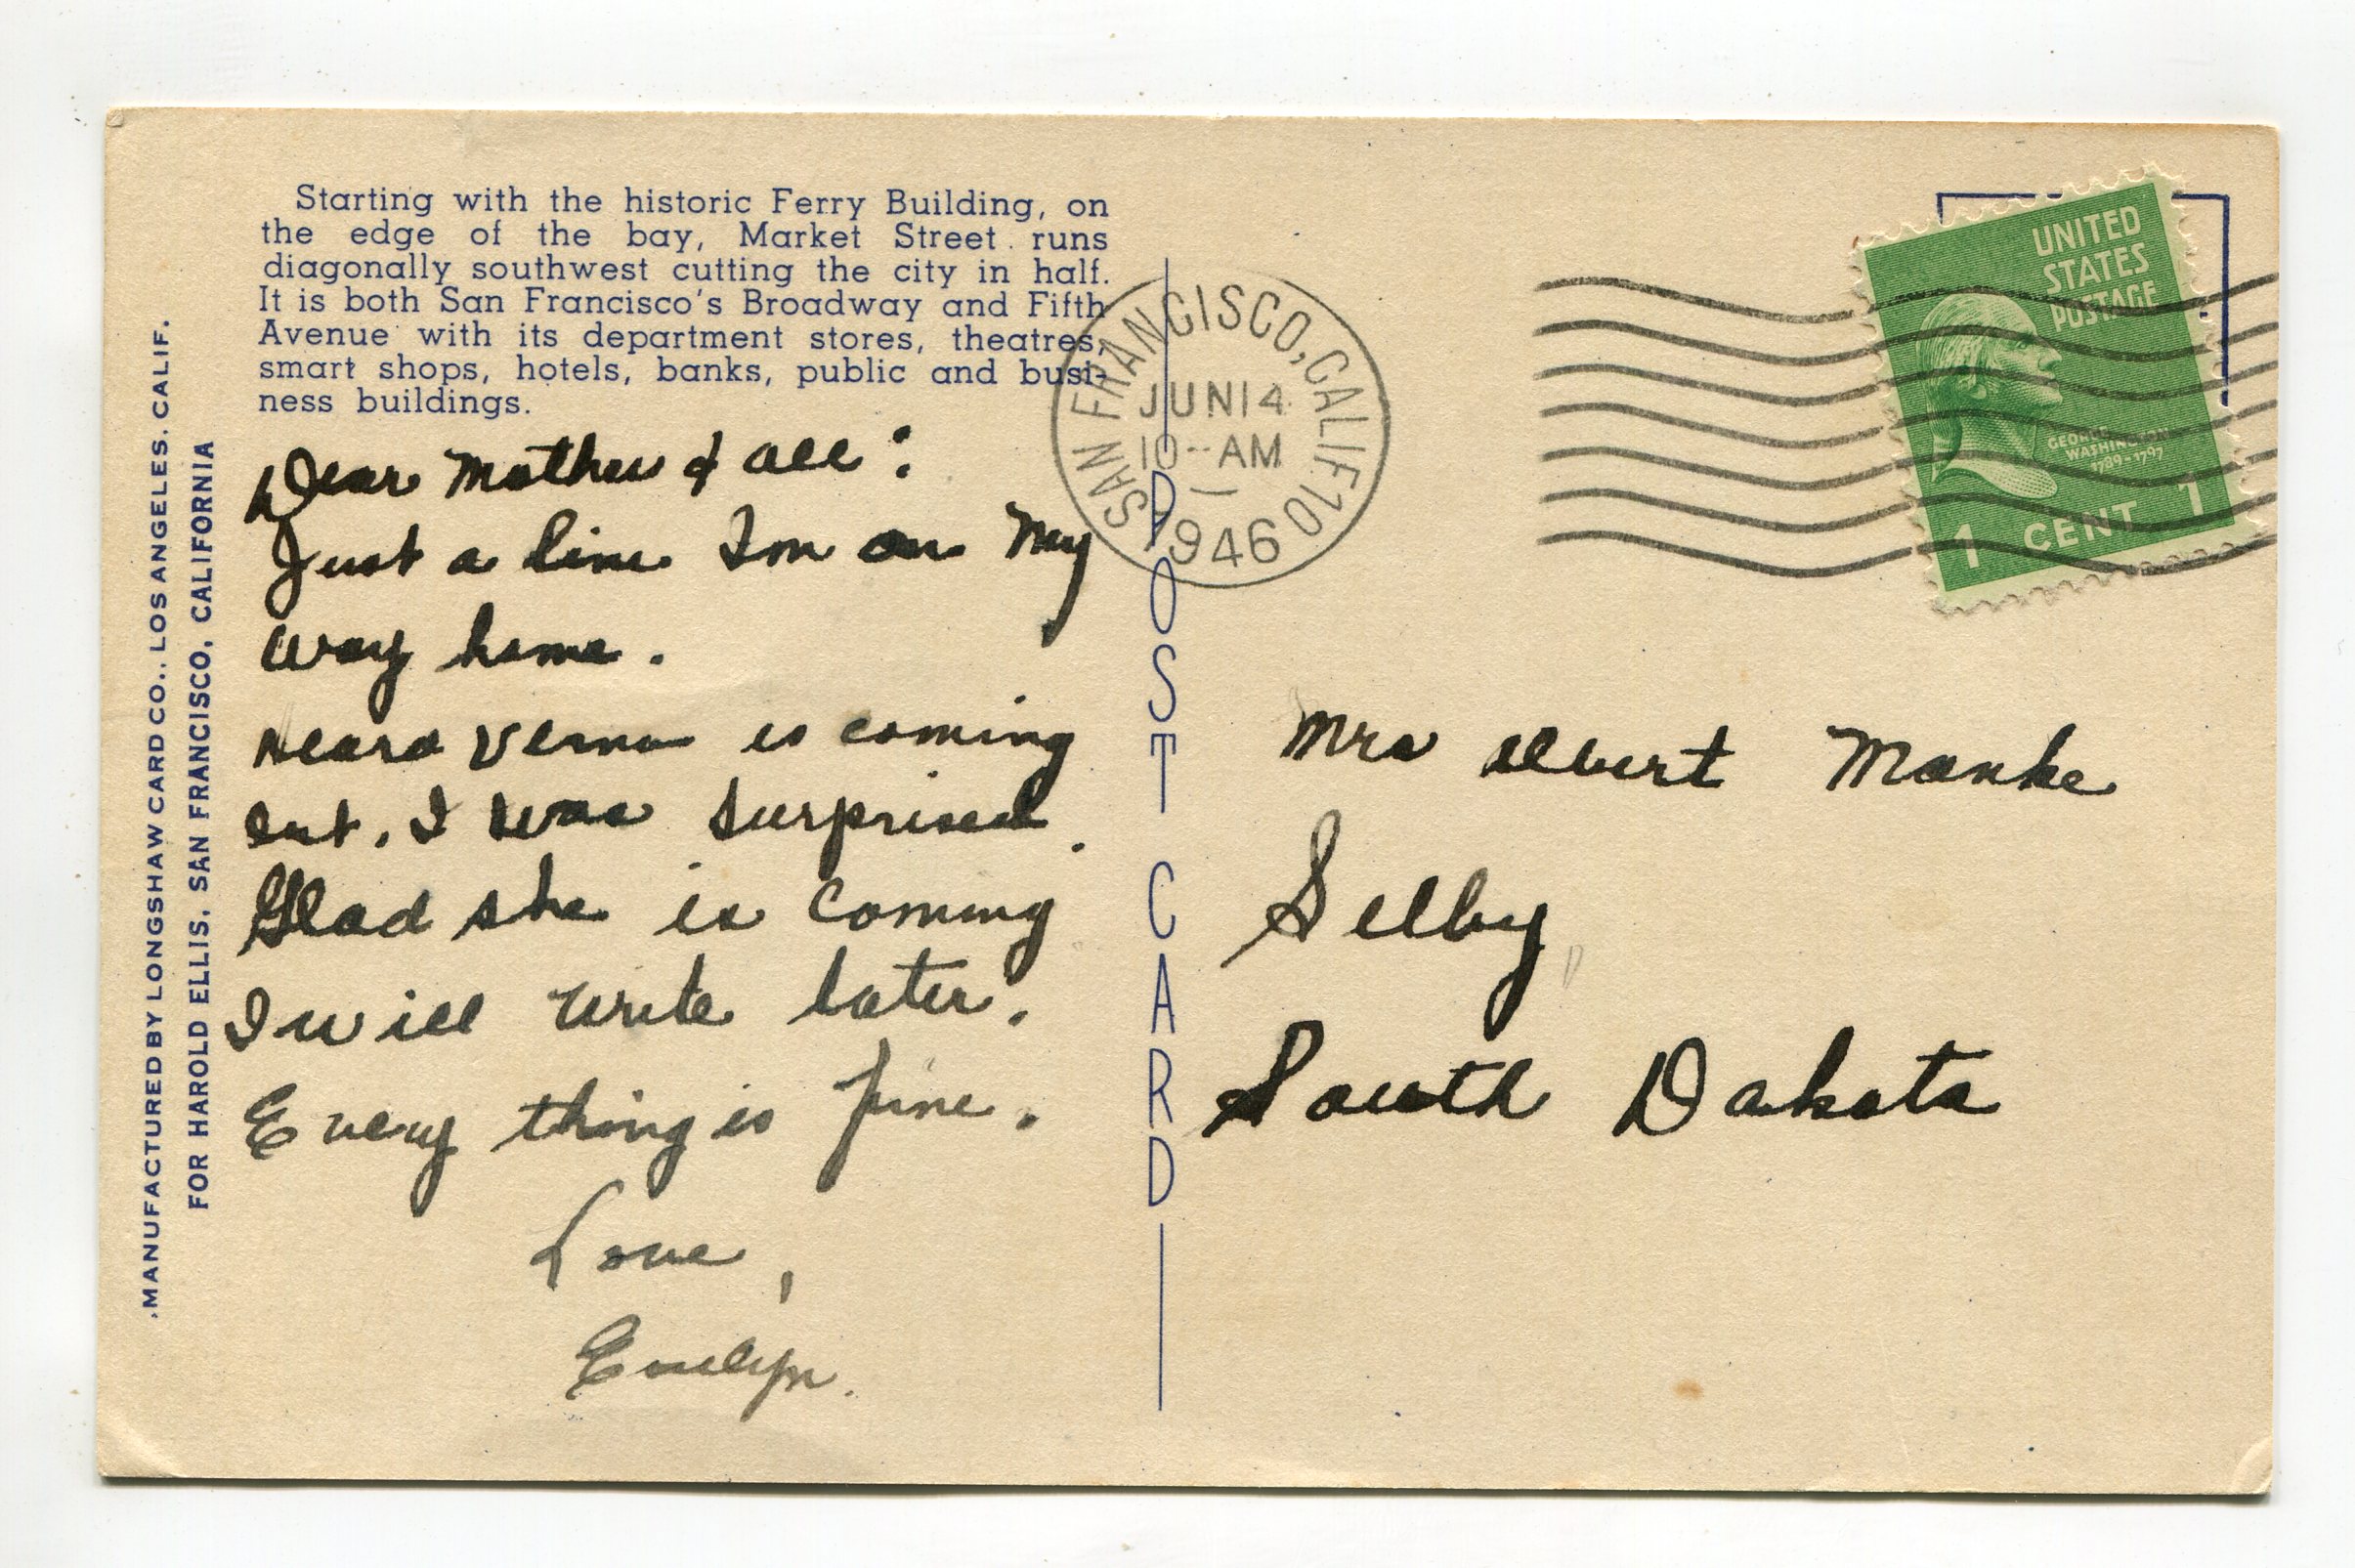 Starting with the historic Ferry Building, on
the edge of the bay, Market Street runs
diagonally southwest cutting the city in half.
It is both San Francisco's Broadway and Fifth
Avenue with its department stores, theatres,
smart shops, hotels, banks, public and busi-
ness buildings.
Dear Mother & all:
Just a line Im on My
way home.
Heard Verna is coming
out. I was surprised.
Glad she is coming
I will write later.
Every thing is fine.
Love,
Evelyn.
MANUFACTURED BY LONGSHAW CARD CO., LOS ANGELES, CALIF.
FOR HAROLD ELLIS, SAN FRANCISCO, CALIFORNIA
POST CARD
SAN FRANCISCO, CALIF. 10
JUN 14
10-AM
1946
UNITED
STATES
POSTAGE
GEORGE
WASHINGTON
1789-1797
1 CENT 1
Mrs Albert Manke
Selby
South Dakota